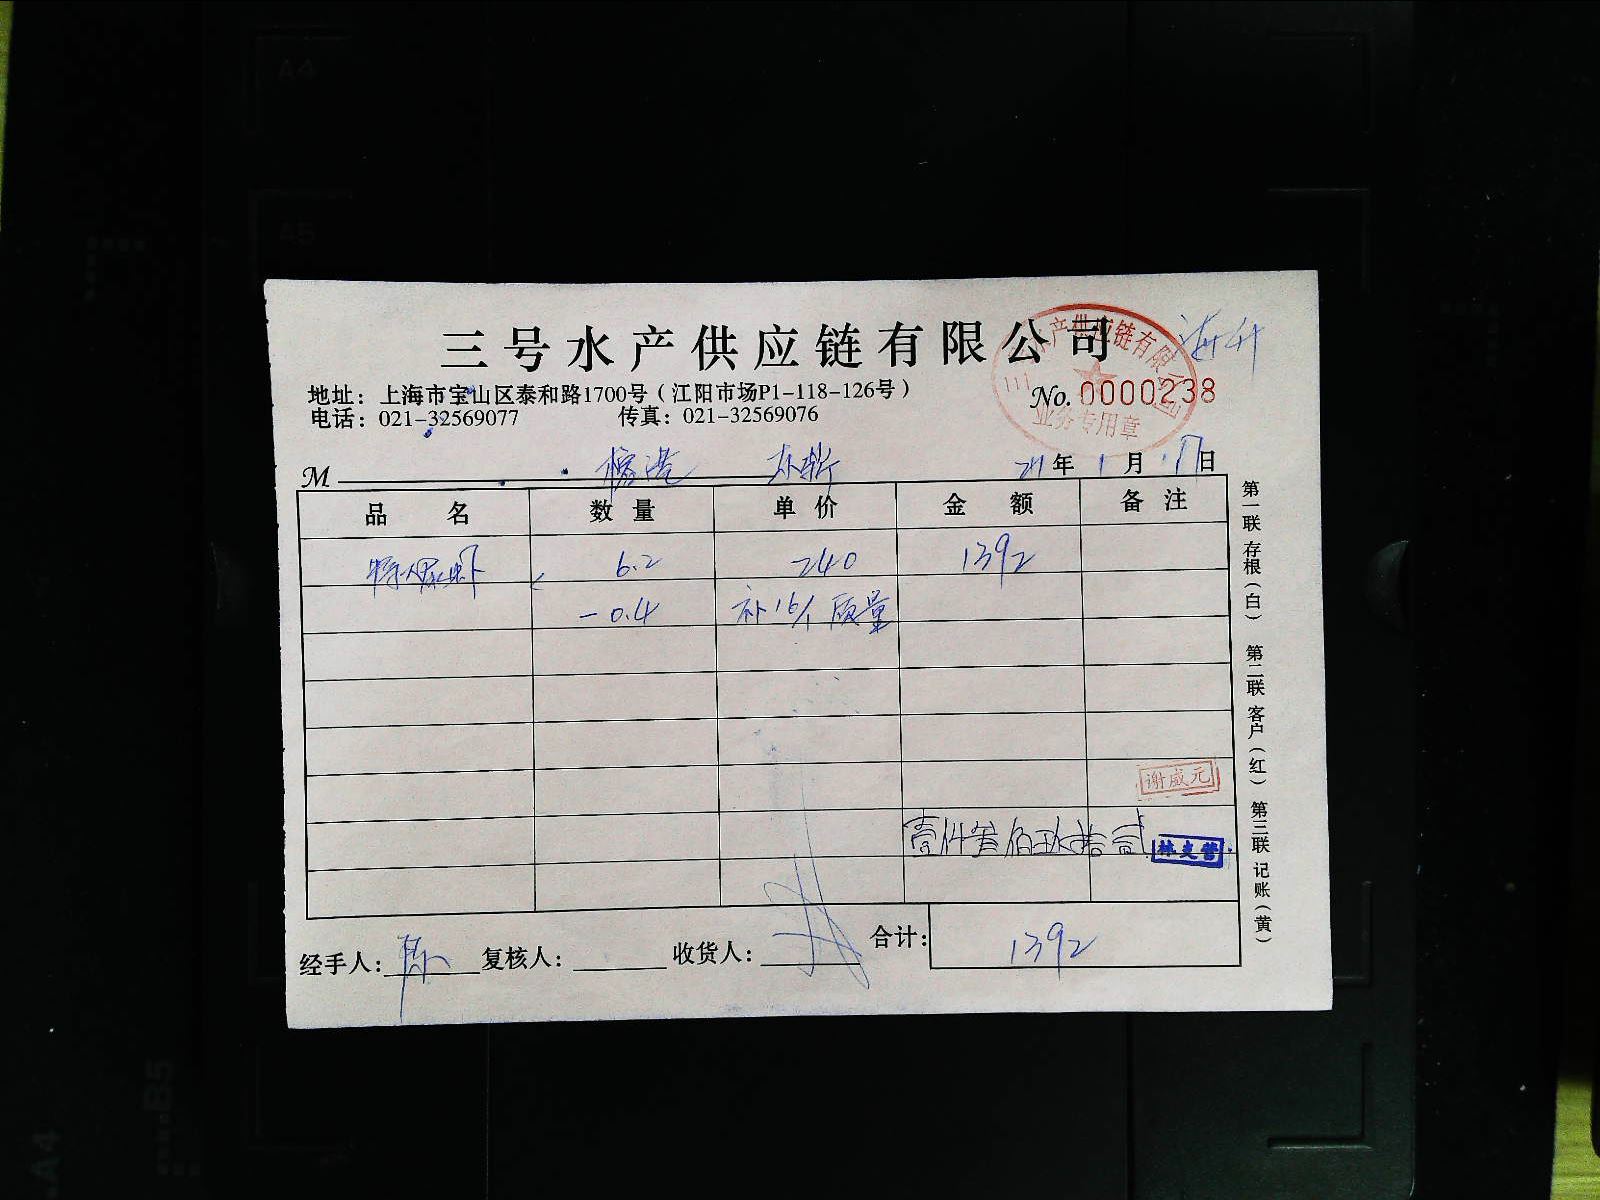 三号水产供应链有限公司
海升
地址：上海市宝山区泰和路1700号（江阳市场P1-118-126号）
No. 0000238
电话：021-32569077 传真：021-32569076
水产供应链有限公司
业务专用章
M 年 1 月 17 日
品名 数量 单价 金额 备注
虾 6.2 240 1392
-0.4 补16个质量
谢威元
壹仟叁佰玖拾贰
合计：1392
经手人：陈 复核人： 收货人：
第一联 存根（白） 第二联 客户（红） 第三联 记账（黄）
A4
A5
B5
A4